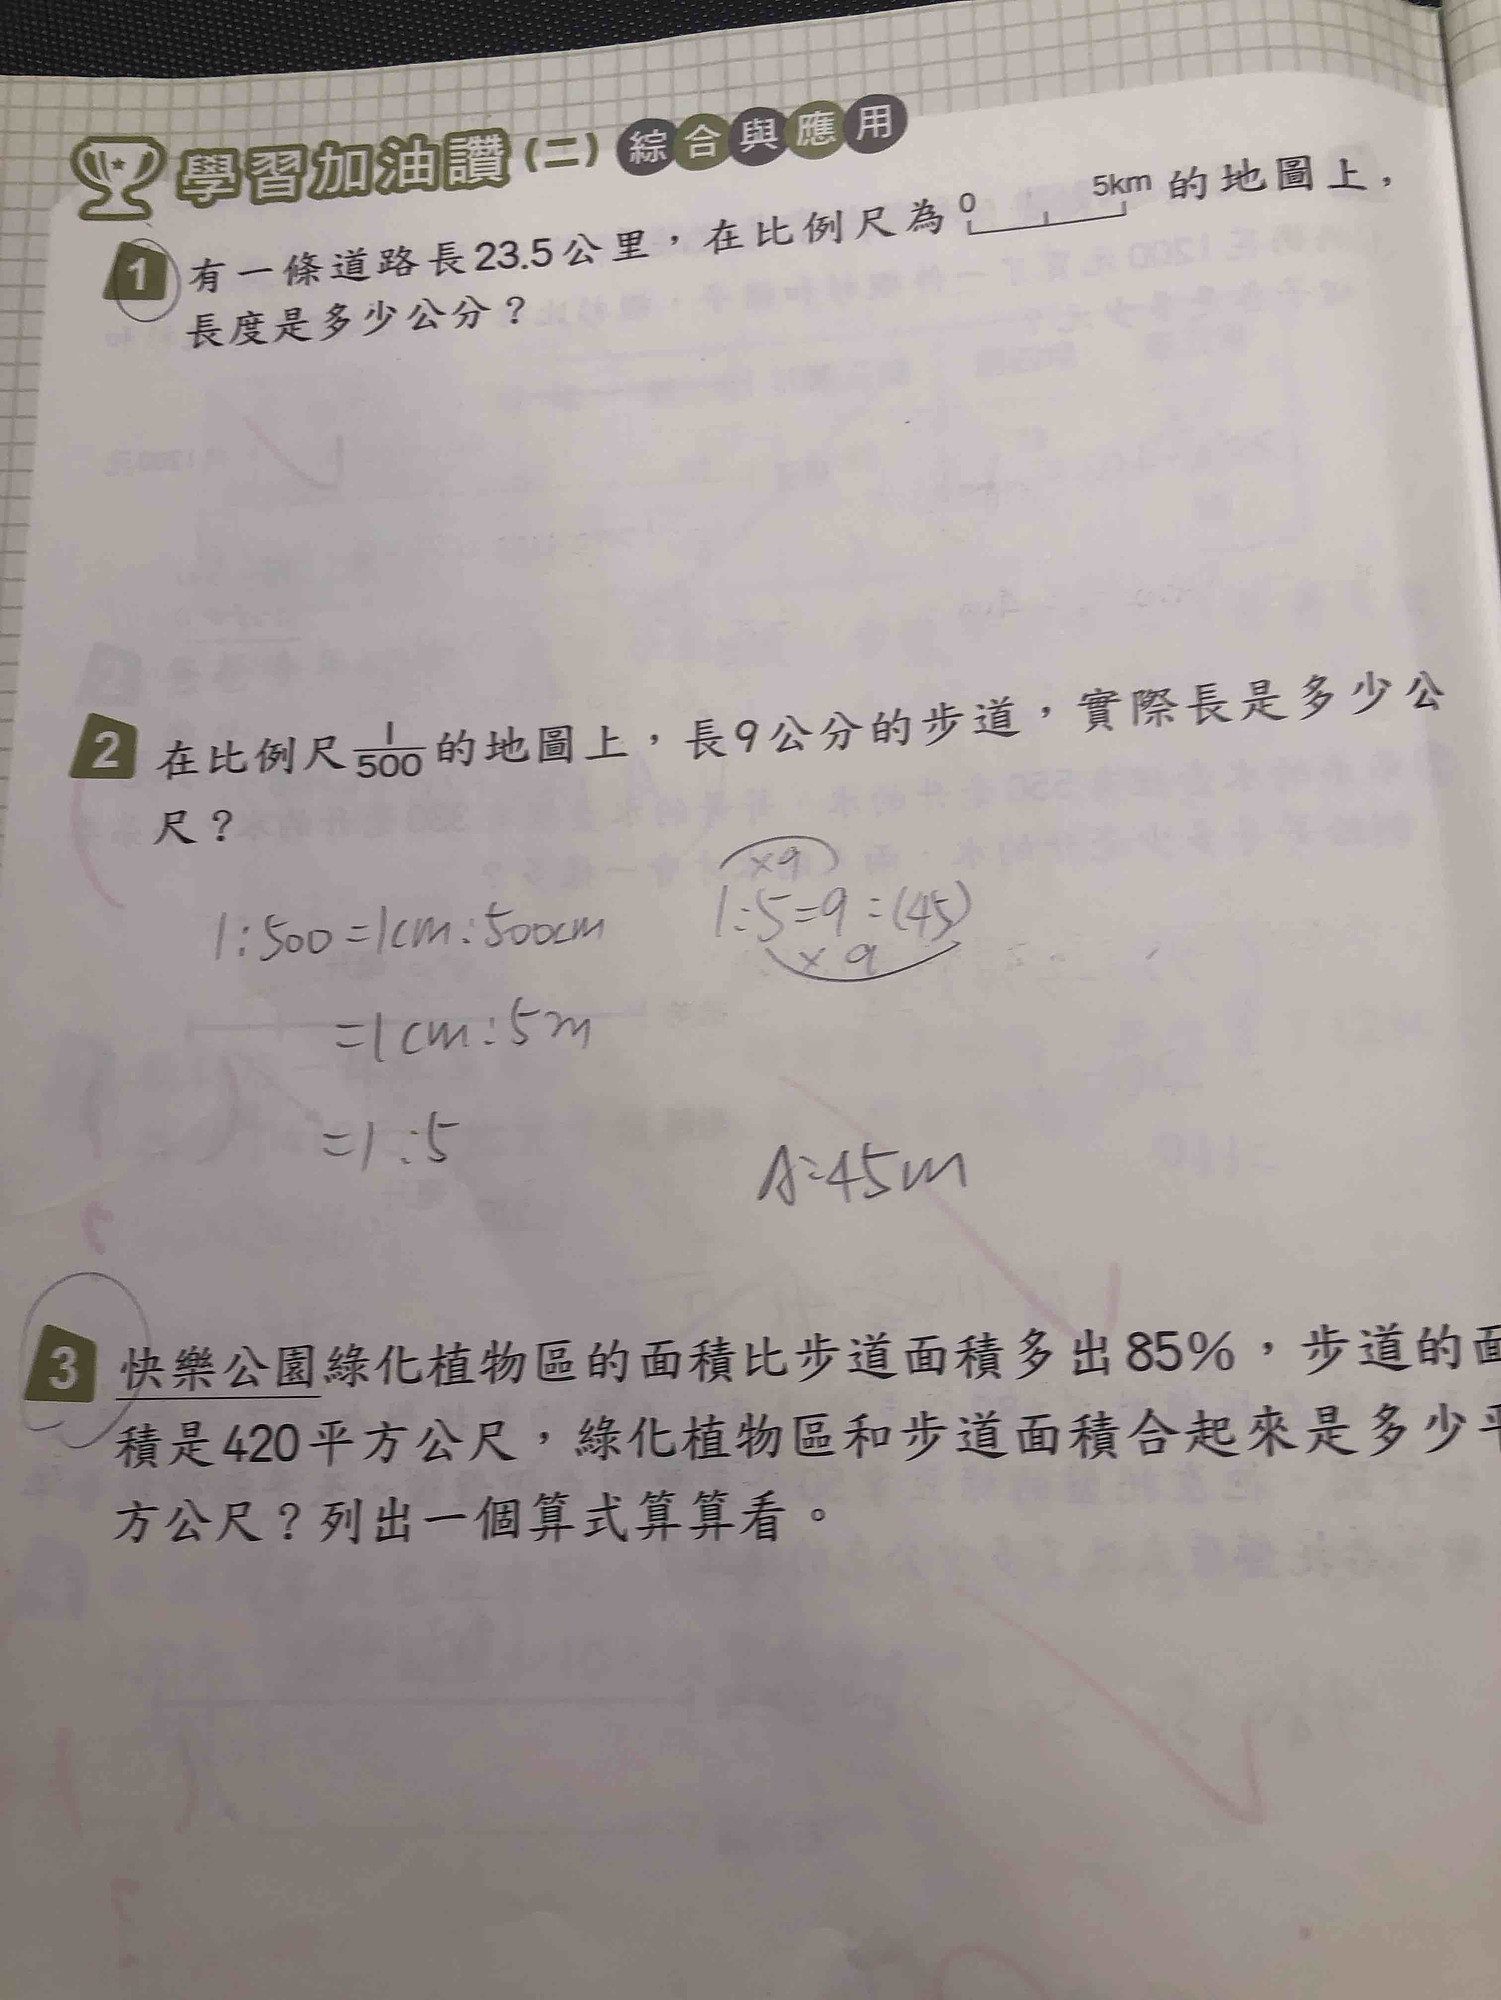 學習加油讚(二)綜合與應用
1 有一條道路長23.5公里，在比例尺為 0 5km 的地圖上，
長度是多少公分？
2 在比例尺1/500的地圖上，長9公分的步道，實際長是多少公
尺？
×9
1:500=1cm:500cm 1:5=9:(45)
×9
=1cm:5m
=1:5
A:45m
3 快樂公園綠化植物區的面積比步道面積多出85%，步道的面
積是420平方公尺，綠化植物區和步道面積合起來是多少平
方公尺？列出一個算式算算看。